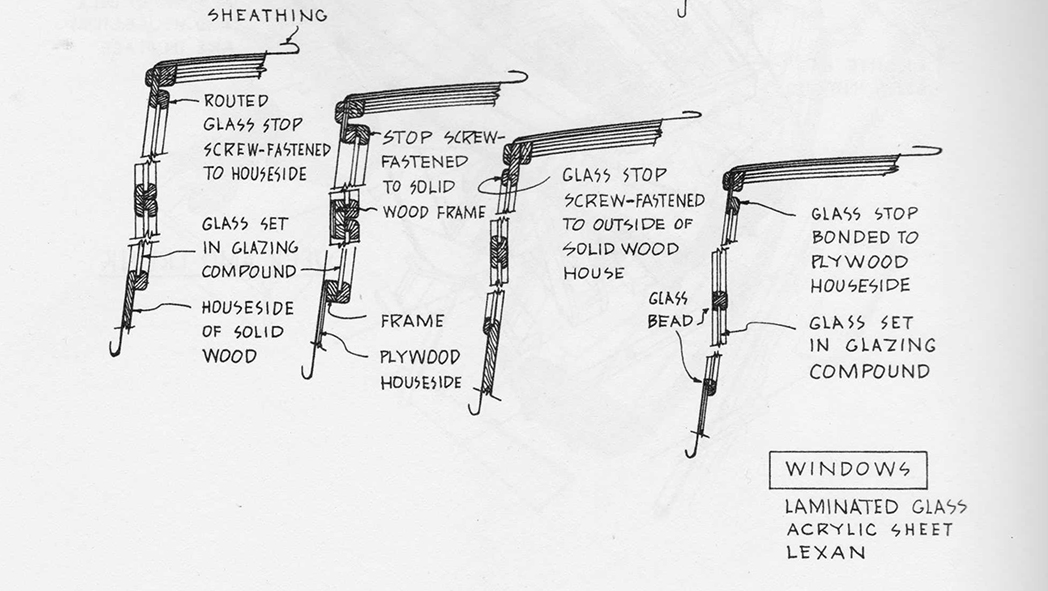 SHEATHING
ROUTED
GLASS STOP
SCREW-FASTENED
TO HOUSESIDE
GLASS SET
IN GLAZING
COMPOUND
HOUSESIDE
OF SOLID
WOOD
STOP SCREW-
FASTENED
TO SOLID
WOOD FRAME
FRAME
PLYWOOD
HOUSESIDE
GLASS STOP
SCREW-FASTENED
TO OUTSIDE OF
SOLID WOOD
HOUSE
GLASS STOP
BONDED TO
PLYWOOD
HOUSESIDE
GLASS
BEAD
GLASS SET
IN GLAZING
COMPOUND
WINDOWS
LAMINATED GLASS
ACRYLIC SHEET
LEXAN